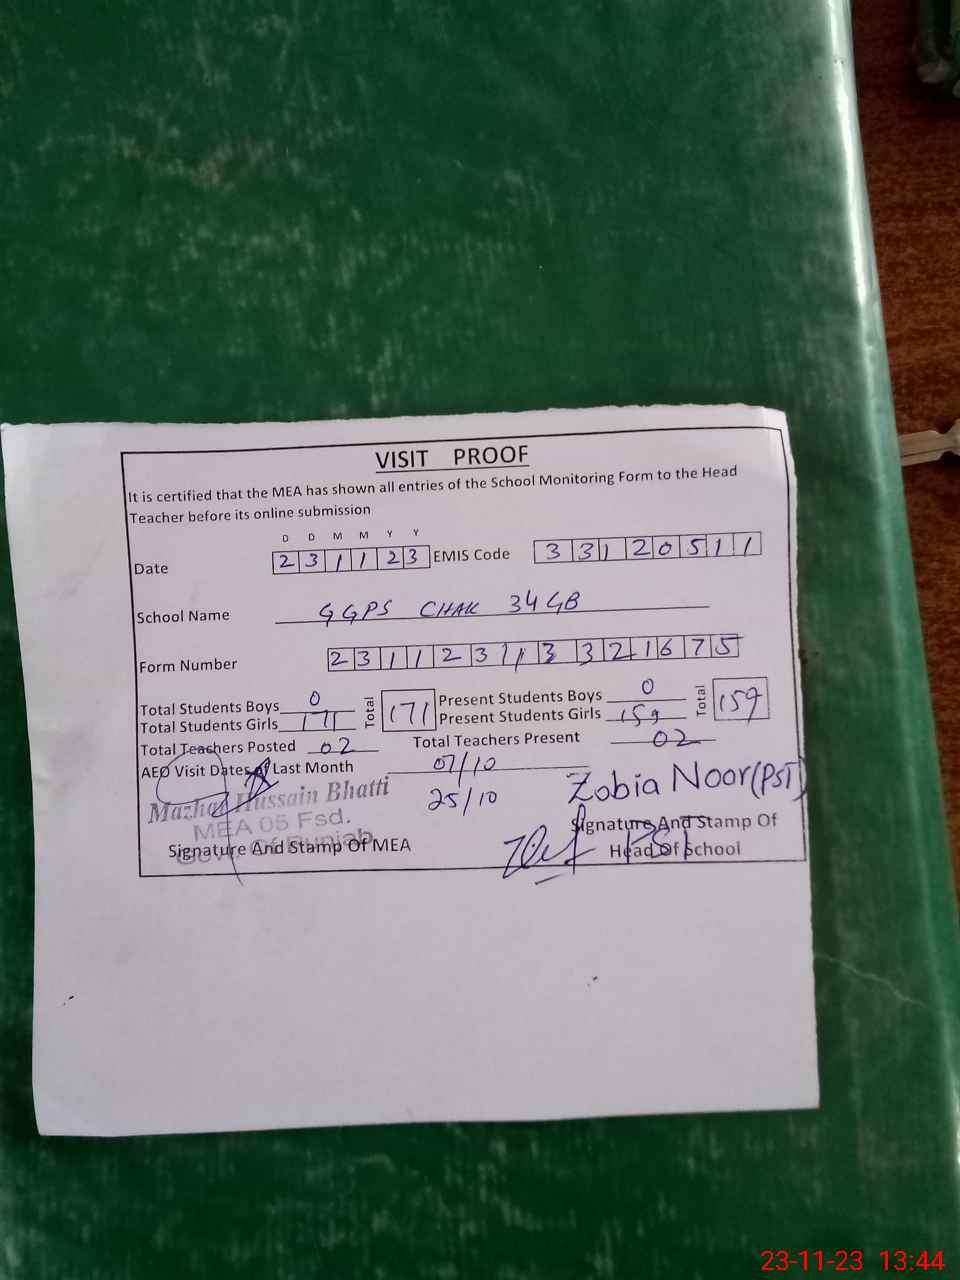 VISIT PROOF
It is certified that the MEA has shown all entries of the School Monitoring Form to the Head
Teacher before its online submission
D D M M Y Y
Date 2 3 1 1 2 3 EMIS Code 3 3 1 2 0 5 1 1
School Name GGPS CHAK 34 GB
Form Number 2 3 1 1 2 3 1 1 3 3 2 1 6 7 5
Total Students Boys 0 Total 171 Present Students Boys 0 Total 159
Total Students Girls 171 Present Students Girls 159
Total Teachers Posted 02 Total Teachers Present 02
AEO Visit Dates Of Last Month 07/10
25/10
Zobia Noor (PST)
Mazhar Hussain Bhatti
MEA 05 Fsd.
Govt. Of Punjab
Signature And Stamp Of MEA
Signature And Stamp Of
Head Of School
PST
23-11-23 13:44